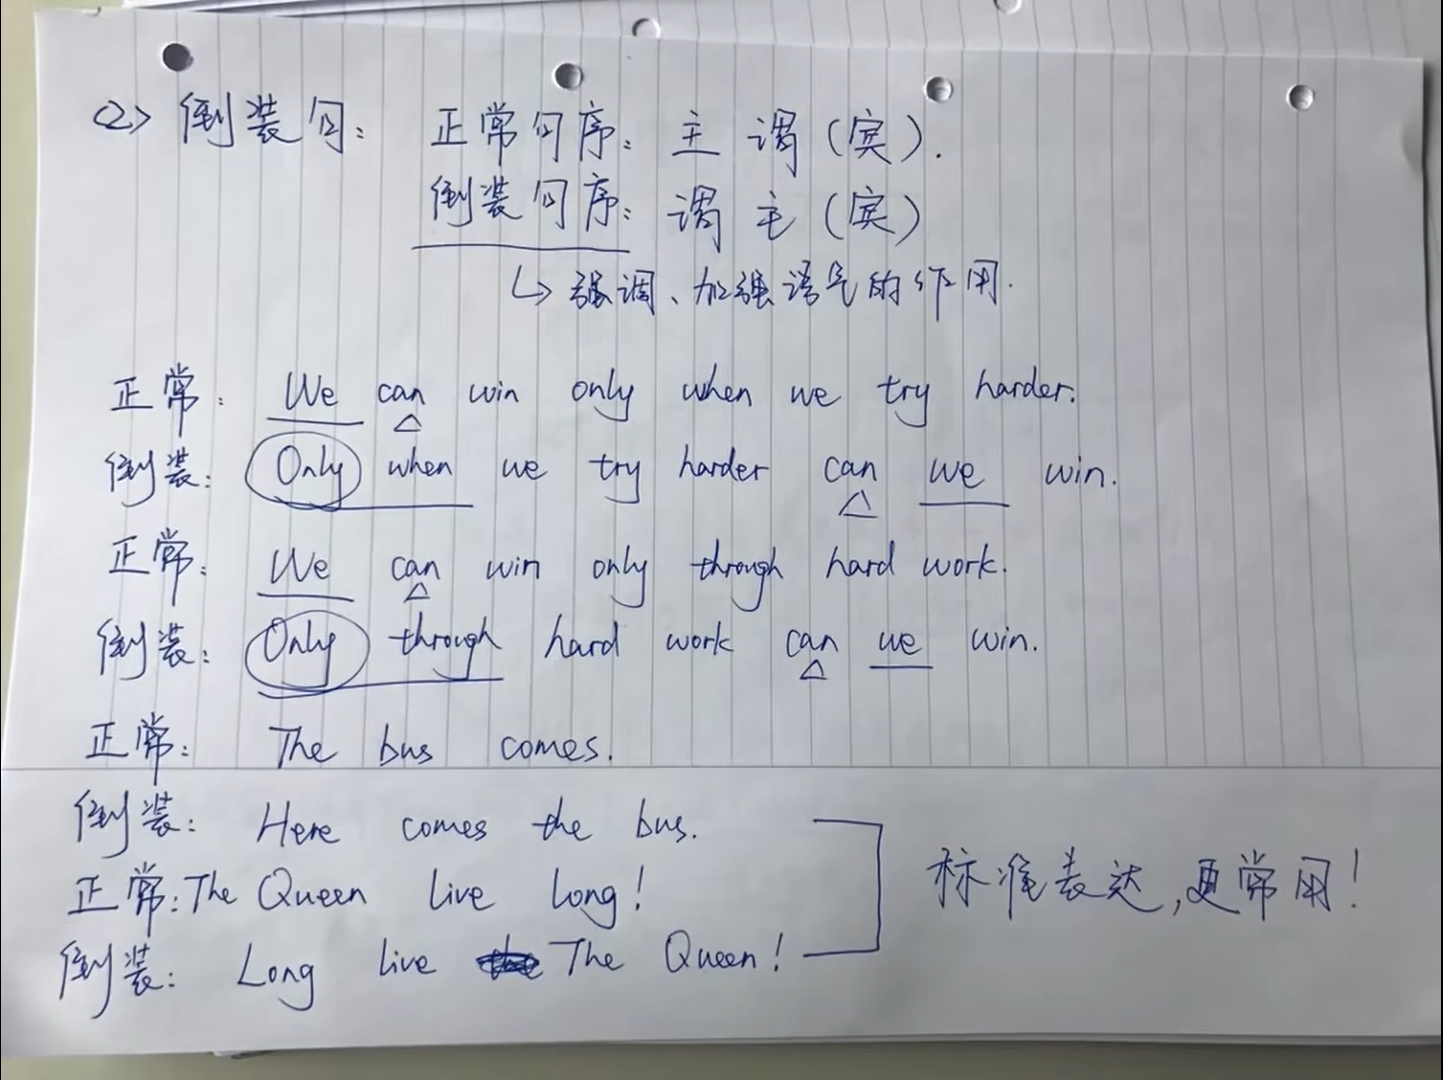 <2> 倒装句: 正常句序: 主 谓 (宾).
倒装句序: 谓 主 (宾)
↳ 强调、加强语气的作用.
正常: We can win only when we try harder.
倒装: Only when we try harder can we win.
正常: We can win only through hard work.
倒装: Only through hard work can we win.
正常: The bus comes.
倒装: Here comes the bus.
正常: The Queen live long!
倒装: Long live The Queen!
标准表达,更常用!